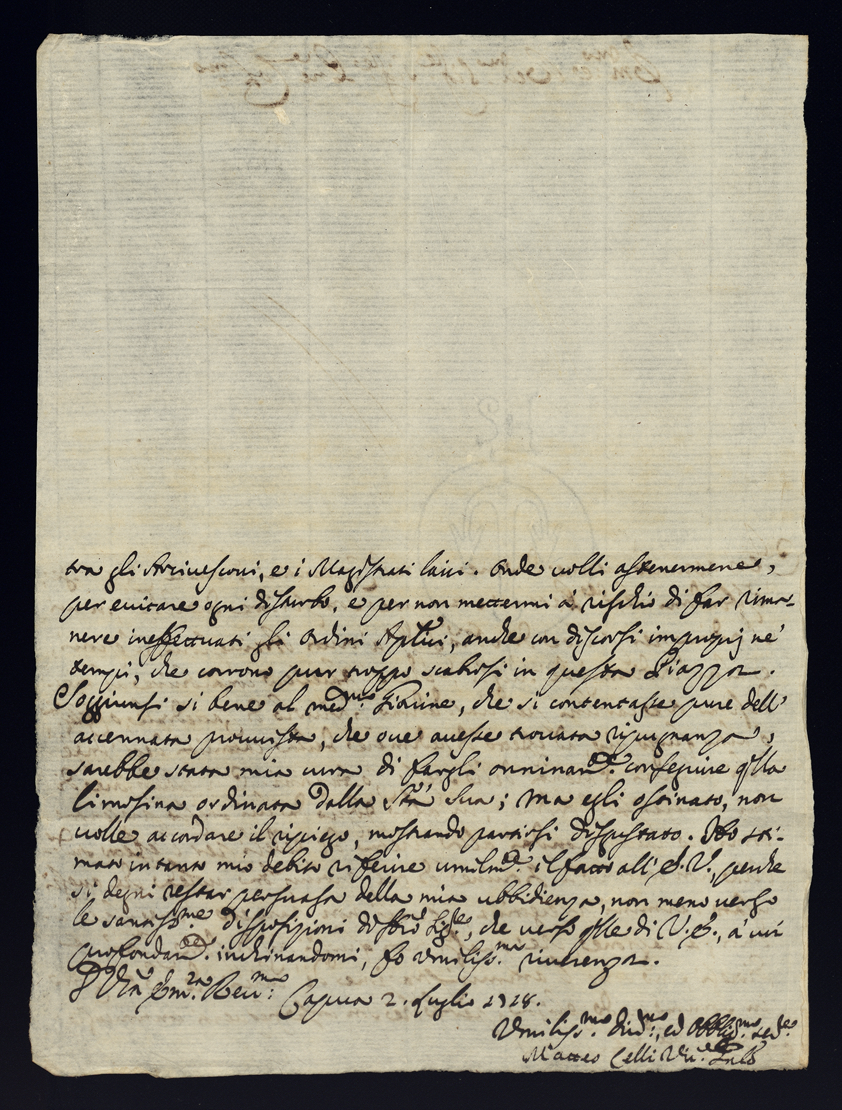 tra gli Arcivescovi, e i Magistrati laici. Onde volli astenermene,
per evitare ogni disturbo, e per non mettermi à rischio di far rima-
nere ineffettuati gli ordini Aplici, anche con discorsi improprj ne'
tempi, che corrono pur troppo scabrosi in questa Piazza.
Soggiunsi si bene al med.mo Giovine, che si contentasse pure dell'
accennata provvista, che ove avesse trovata ripugnanza,
sarebbe stata mia cura di fargli onninam.te conseguire q̃lla
limosina ordinata dalla Stà Sua; ma egli ostinato, non
volle accordare il ripiego, mostrando partirsi disgustato. Hò sti-
mato intanto mio debito riferire umilm.te il fatto all' E. V., perche
si degni restar persuasa della mia ubbidienza, non meno verso
le santiss.me disposizioni di Sig.re, che verso q̃lle di V. E., à cui
profondam.te inchinandomi, fo umiliss.ma riverenza.
D Vrã Em.za Rev.ma: Capua 2. Luglio 1728.
Umiliss.mo Div.mo, ed Obblig.mo ser.e
Matteo Celli Vic.